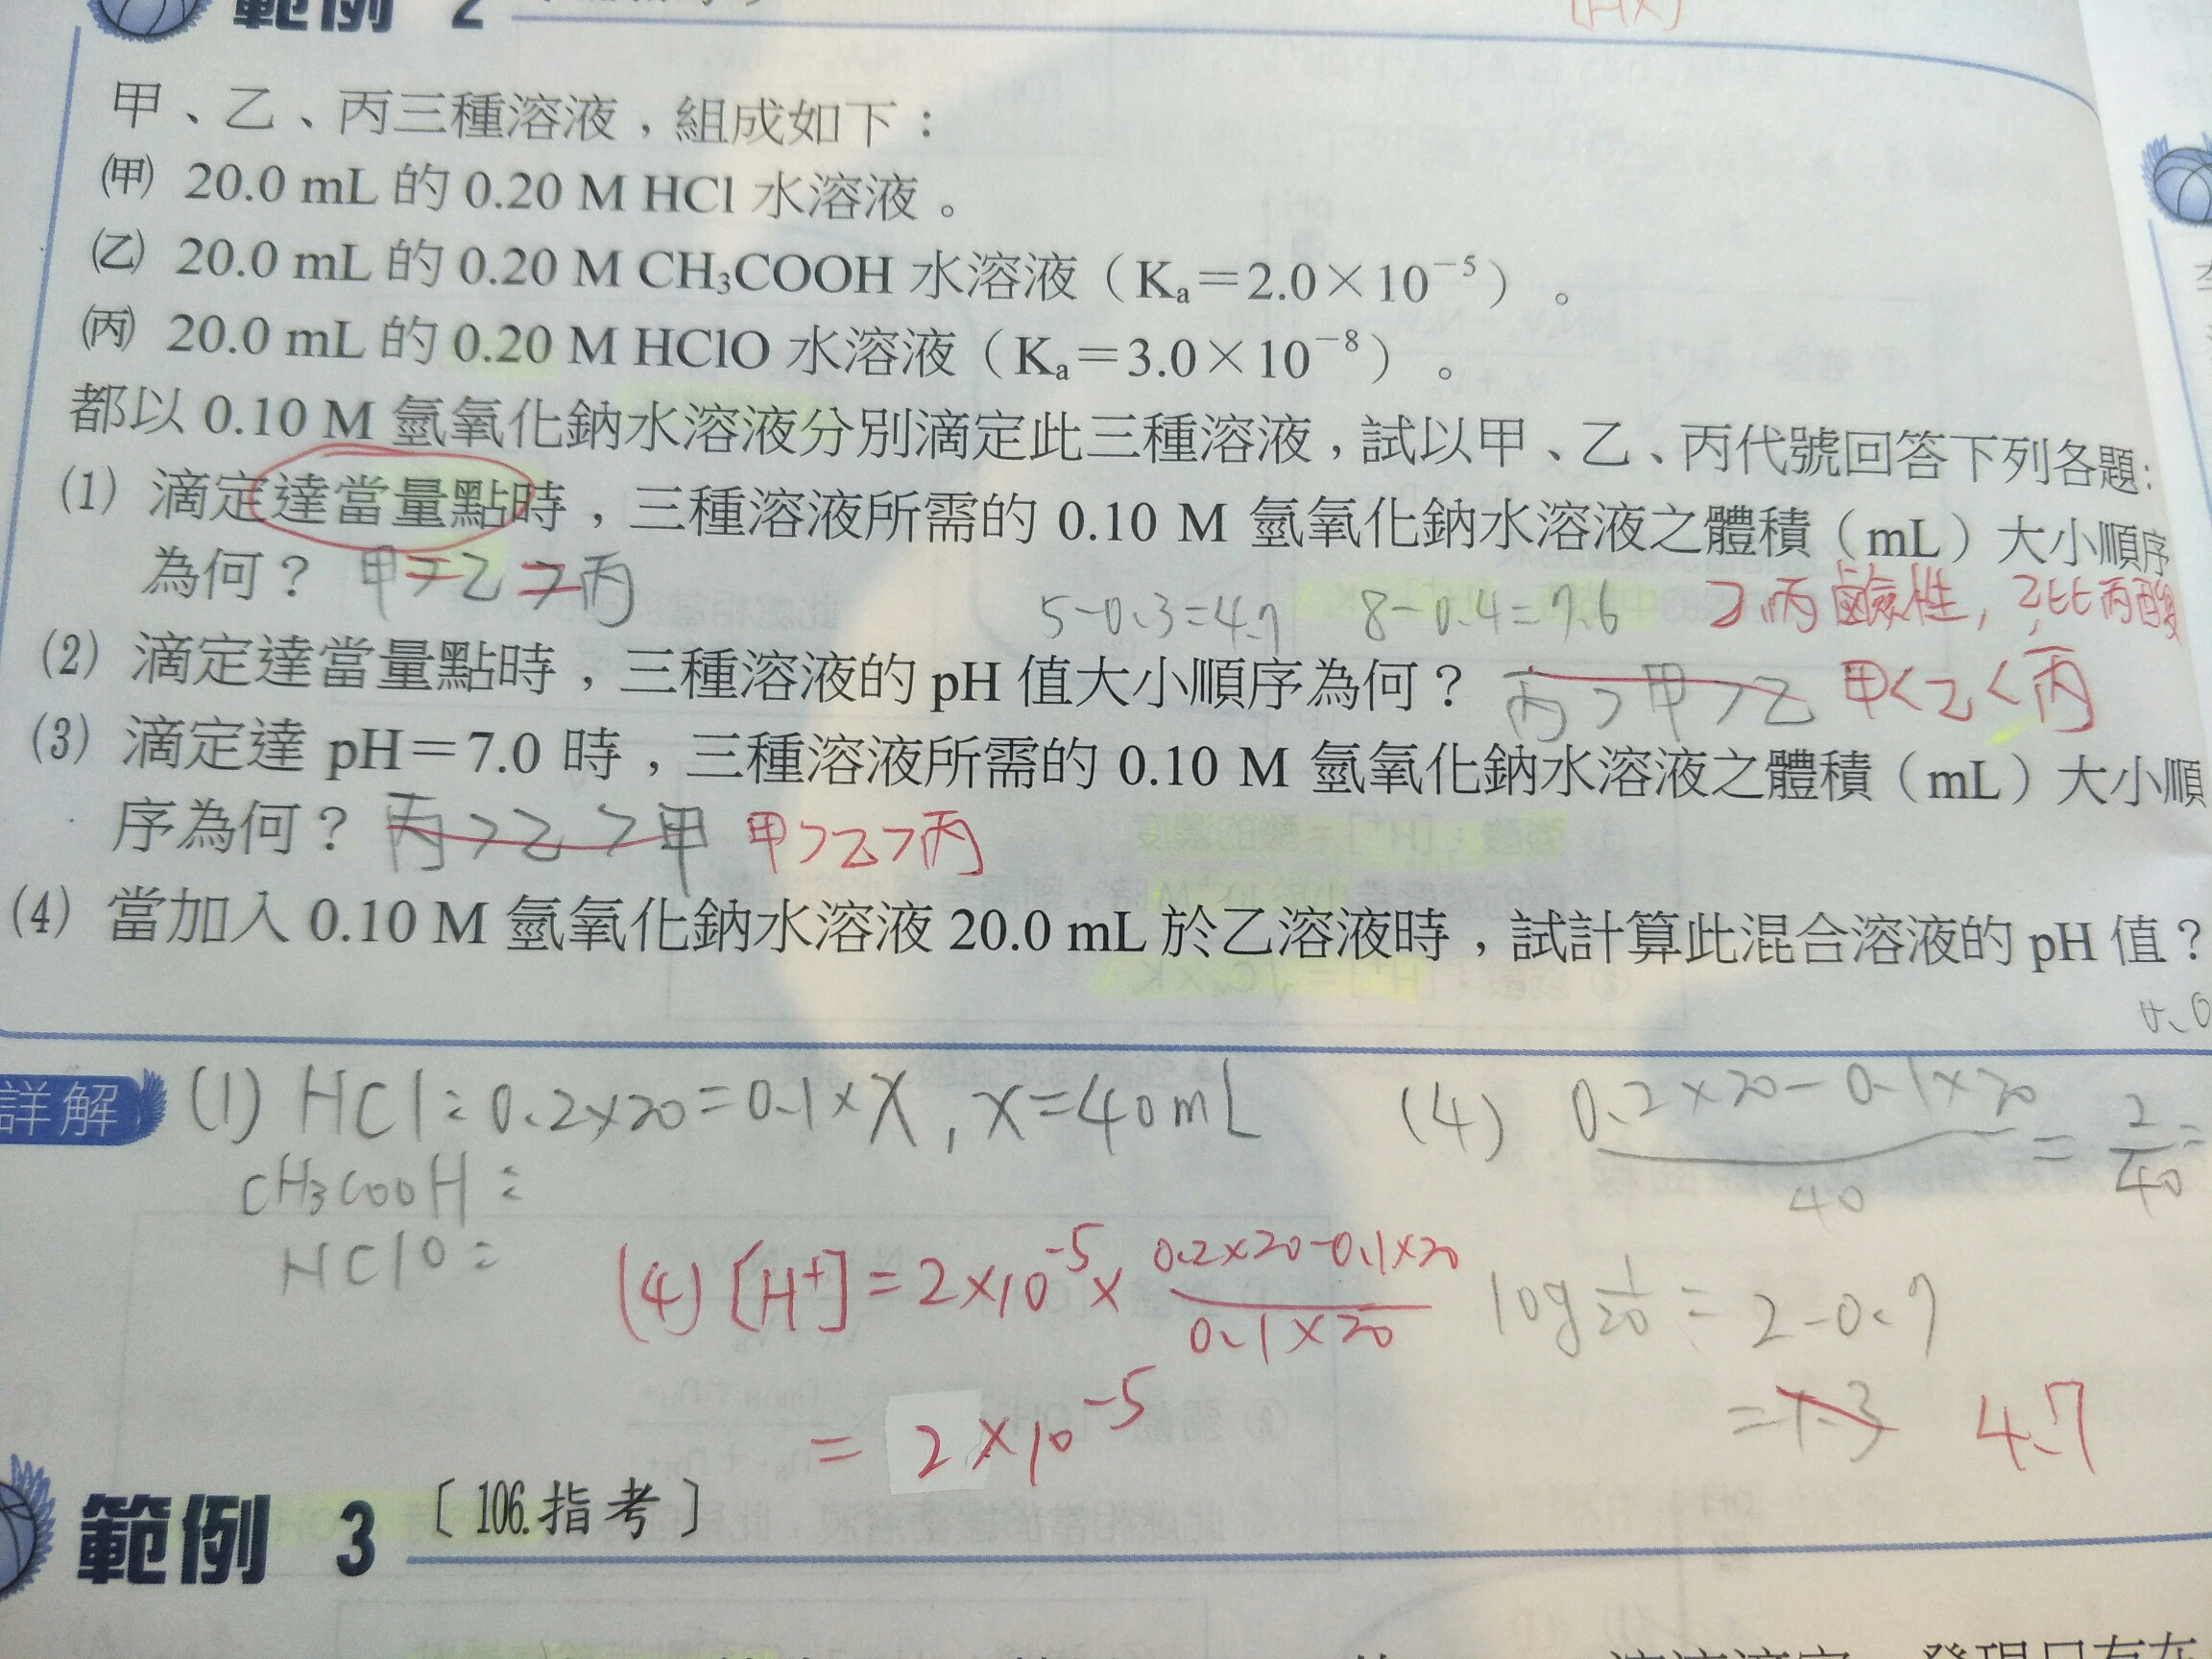 範例 2
[HX]
甲、乙、丙三種溶液，組成如下：
㈙ 20.0 mL 的 0.20 M HCl 水溶液。
(乙) 20.0 mL 的 0.20 M CH₃COOH 水溶液（Kₐ＝2.0×10⁻⁵）。
(丙) 20.0 mL 的 0.20 M HClO 水溶液（Kₐ＝3.0×10⁻⁸）。
都以 0.10 M 氫氧化鈉水溶液分別滴定此三種溶液，試以甲、乙、丙代號回答下列各題：
(1) 滴定達當量點時，三種溶液所需的 0.10 M 氫氧化鈉水溶液之體積（mL）大小順序
為何？ 甲=乙=丙
5-0.3=4.7 8-0.4=7.6 乙丙鹼性，乙比丙酸
(2) 滴定達當量點時，三種溶液的 pH 值大小順序為何？ 丙>甲>乙 甲<乙<丙
(3) 滴定達 pH＝7.0 時，三種溶液所需的 0.10 M 氫氧化鈉水溶液之體積（mL）大小順
序為何？ 丙>乙>甲 甲>乙>丙
(4) 當加入 0.10 M 氫氧化鈉水溶液 20.0 mL 於乙溶液時，試計算此混合溶液的 pH 值？
詳解 (1) HCl: 0.2×20=0.1×X, X=40mL (4) 0.2×20-0.1×20/40 = 2/40 =
CH3COOH:
HClO:
(4) [H⁺]=2×10⁻⁵× 0.2×20-0.1×20/0.1×20 log 1/20 = 2-0.7
= 2×10⁻⁵ =1.3 4.7
範例 3 〔106.指考〕